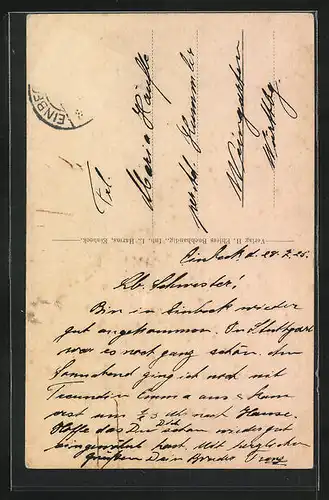 EINBECK
Frl.
Maria Häufle
per Ad. Hummler
Weingarten
Württbg.
Verlag H. Ehlers Buchhandlg., Inh. L. Harms, Einbeck.
Einbeck d. 28.7.25.
Lb. Schwester!
Bin in Einbek wieder
gut angekommen. In Stuttgart
war es noch ganz schön. Am
Sonnabend ging ich noch mit
Freundin Emma aus &
erst um 3 Uhr nach Hause.
Hoffe das Du Dich schon wieder gut
eingewöhnt hast. Mit herzlichen
Grüßen Dein Bruder Franz